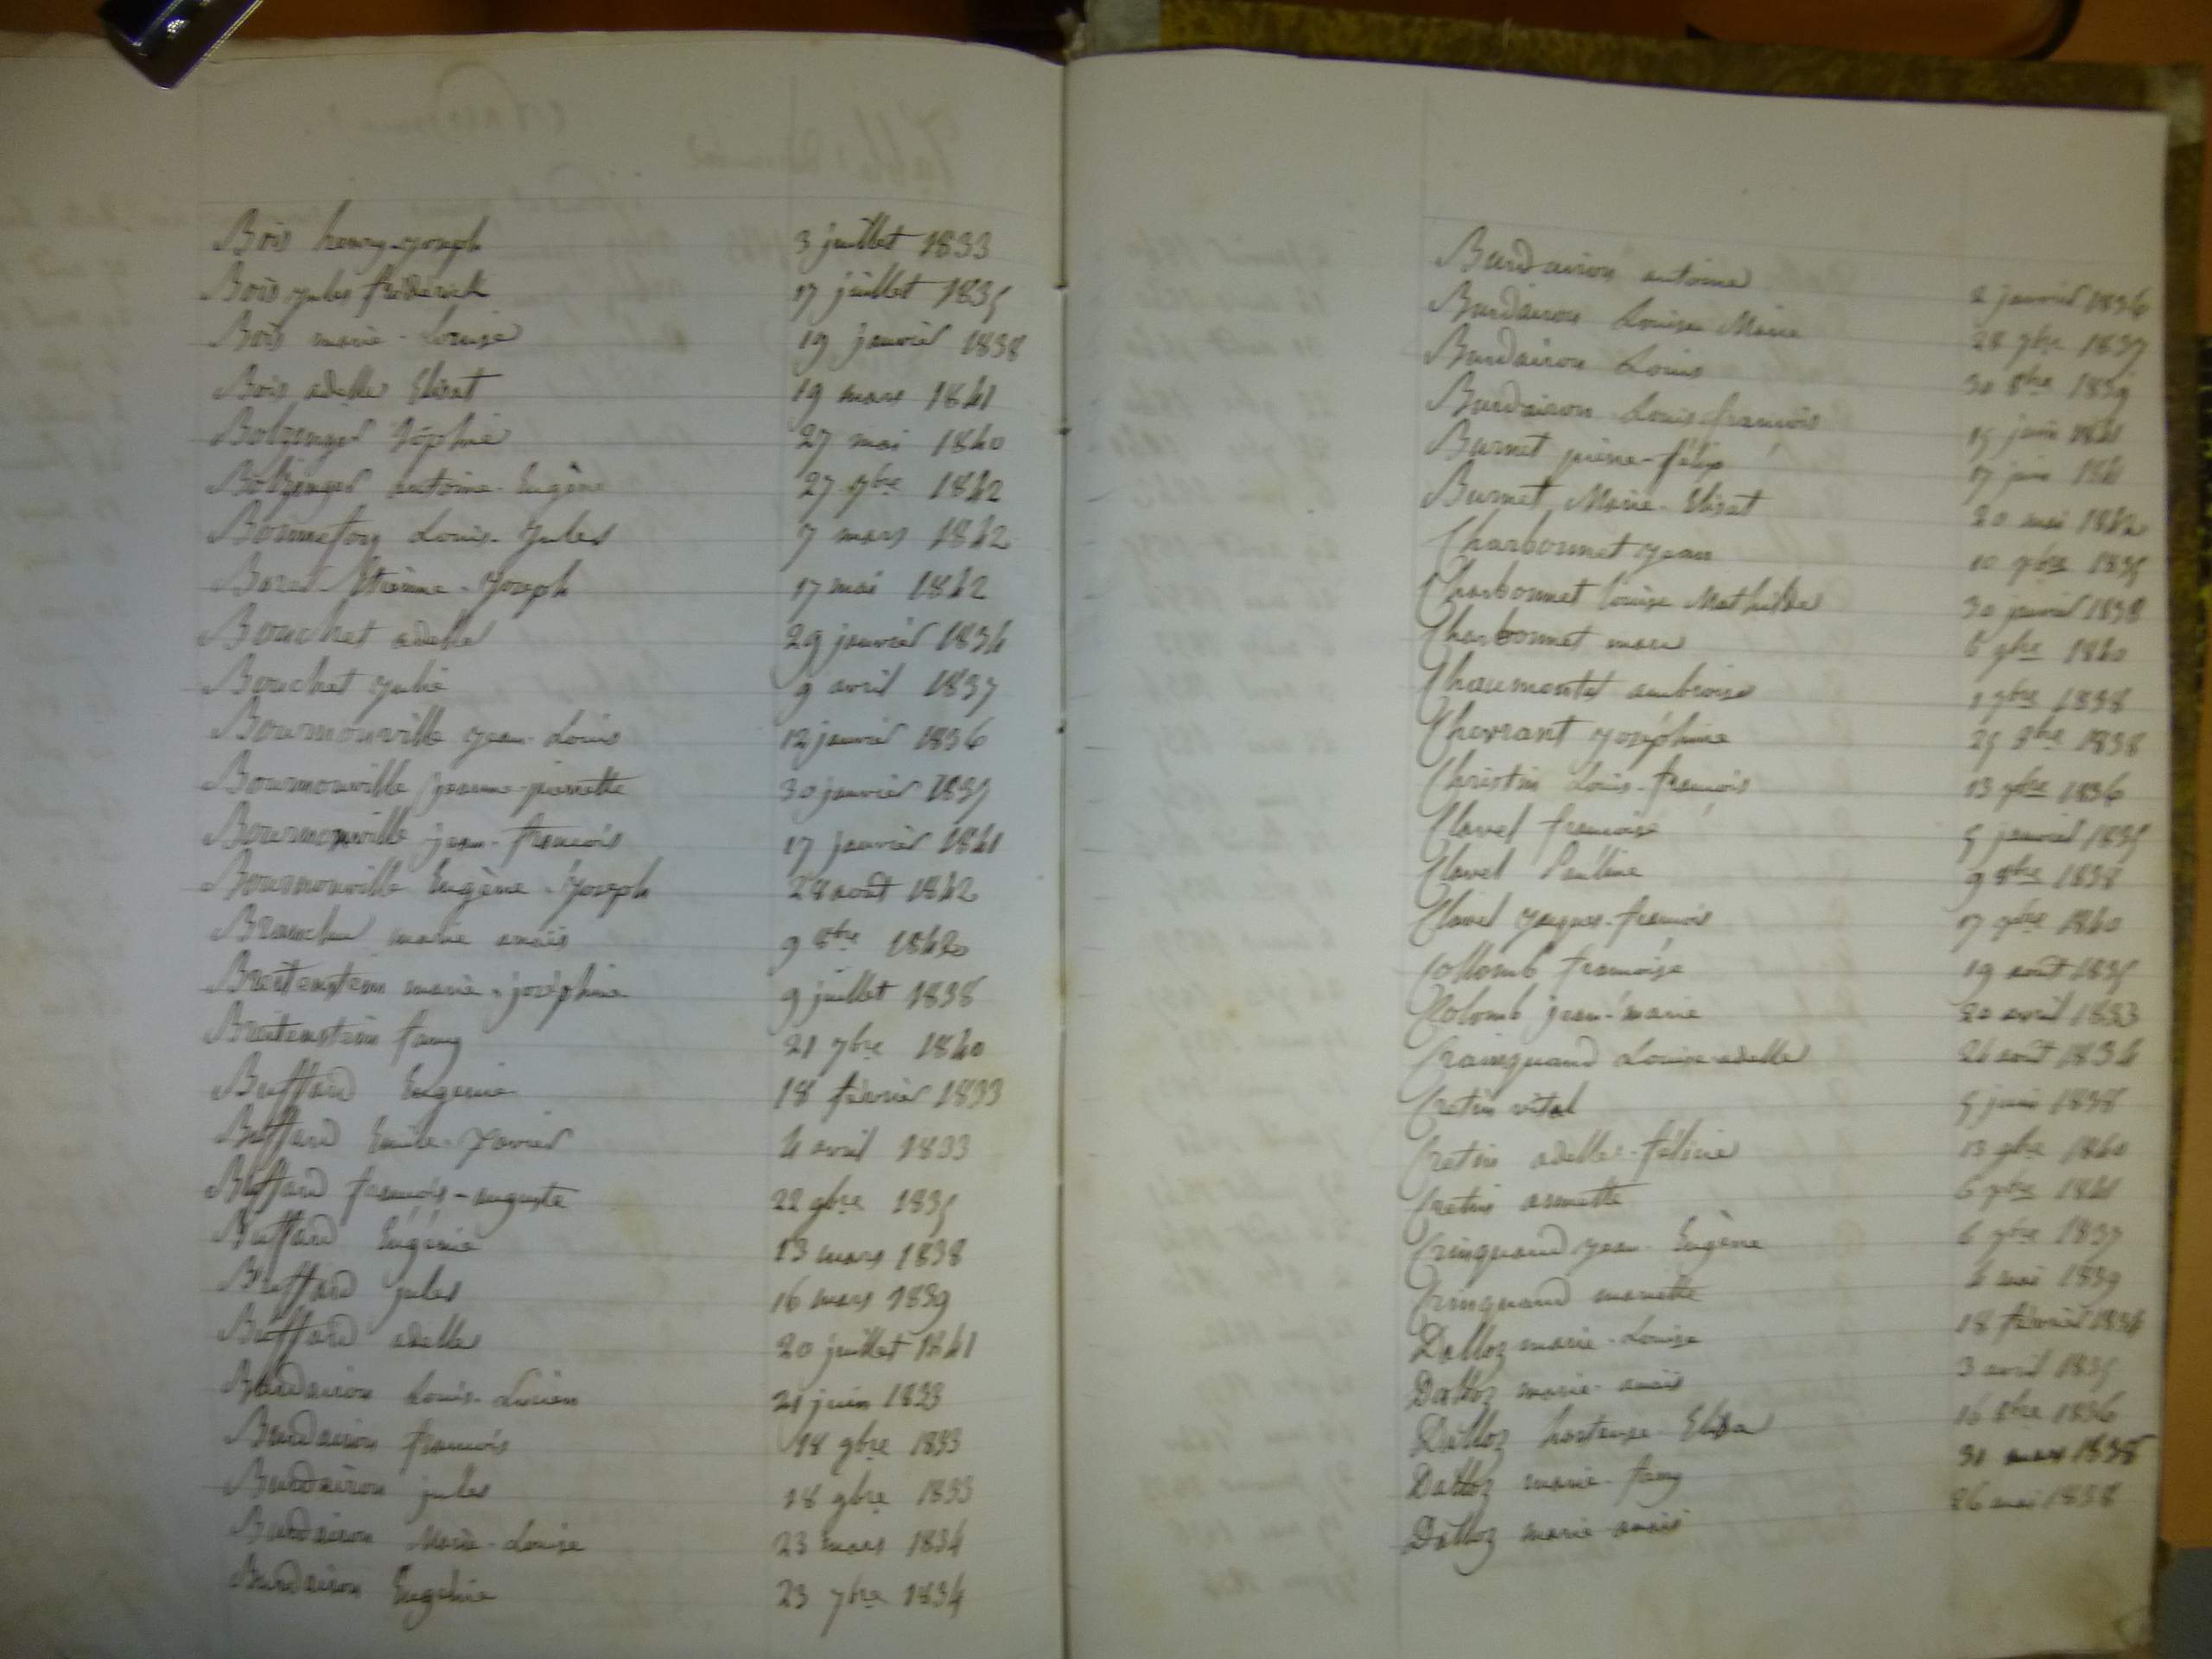 Bois henry-joseph 3 juillet 1833
Bois jules frédérick 17 juillet 1835
Bois marie-Louise 19 janvier 1838
Bois adelle Elisat 19 mars 1841
Bolzinger Sophie 27 mai 1840
Bolzinger antoine-Eugène 27 7bre 1842
Bonnefoy Louis-Jules 7 mars 1842
Etienne-Joseph 17 mai 1842
Bouchet adelle 29 janvier 1834
Bouchet Julie 9 avril 1837
Bournonville Jean-Louis 12 janvier 1836
Bournonville jeanne-pierrette 30 janvier
Bournonville jean-francois 17 janvier 1841
Bournonville Eugène-Joseph 28 août 1842
marie anaïs 9 8bre
Breitenstein marie-joséphine 9 juillet 1838
Breitenstein fany 21 7bre 1840
Buffard Eugenie 18 février 1833
Buffard Emile-Xavier 4 avril 1833
Buffard françois-auguste 22 9bre 1835
Buffard Eugénie 13 mars 1838
Buffard jules 16 mars 1839
Buffard adelle 20 juillet 1841
Burdairon Louis-Lucien 21 juin 1833
Burdairon francois 18 9bre 1833
Burdairon jules 18 9bre 1833
Burdairon Marie-Louise 23 mars 1834
Burdairon Eugénie 23 7bre 1834
Burdairon antoine 2 janvier 1836
Burdairon Louise Marie 28 7bre 1837
Burdairon Louis 30 8bre 1839
Burdairon Louis francois 15 juin 1841
Burnet pierre-félix 17 juin 1841
Burnet Marie-Elisat 20 mai 1842
Charbonnet Jean 10 1835
Charbonnet Louise Mathilde 30 janvier 1838
Charbonnet marie 6 9bre 1840
Chaumontet ambroise 1 7bre 1838
Chevrant Joséphine 25 8bre 1838
Christin Louis-francois 13 1836
Clavel francoise 5 janvier 1835
Clavel Pauline 9 8bre 1838
Clavel Jacques-francois 17 9bre 1840
Collomb francoise 19 août 1835
Colomb jean-marie 20 avril 1833
Crainquand Louise adelle 24 août 1834
Cretin vital 5 juin 1838
Cretin adelle-féline 13 9bre 1840
Cretin annette 6 1841
Crinquand Jean-Eugène 6 7bre 1837
Crinquand mariette mai 1839
Dalloz marie-Louise 18 février 1834
Dalloz marie-anaïs 3 avril 1835
Dalloz hortense-Elisa 16 8bre 1836
Dalloz marie-fany 31 mars 1838
Dalloz marie anaïs 26 mai 1838